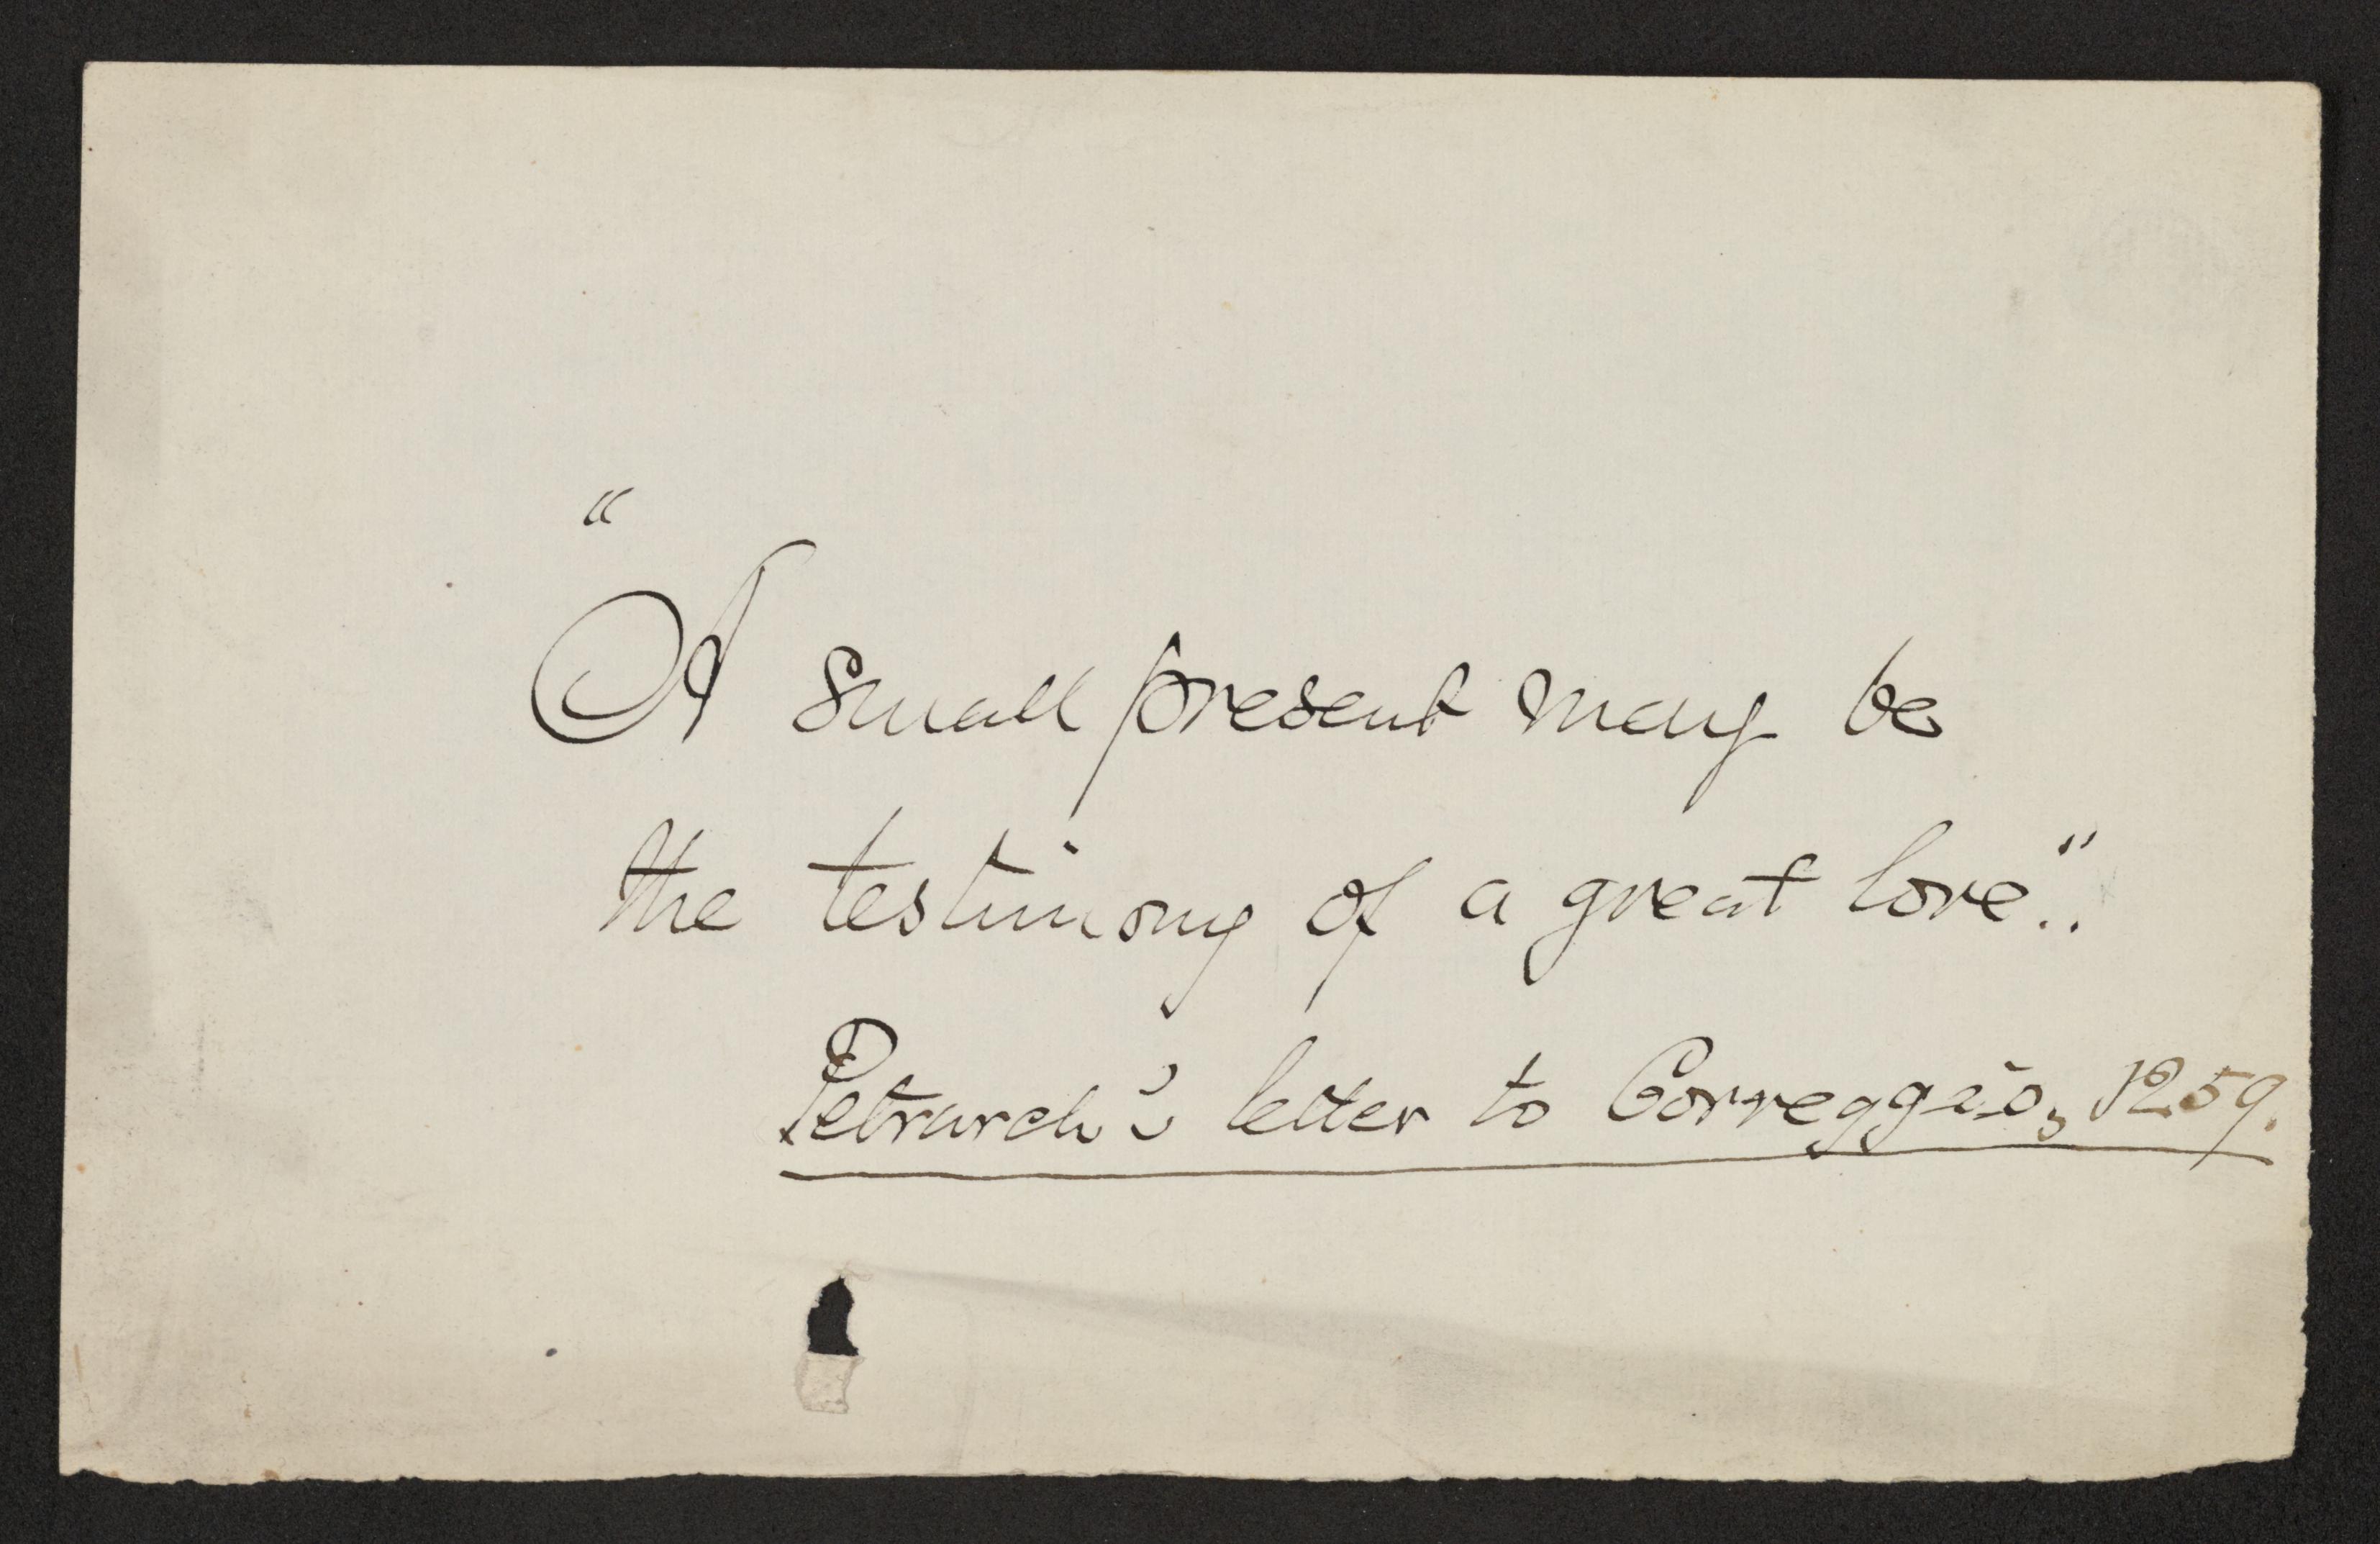 "
A small present may be
the testimony of a great love.".
Petrarch's letter to Correggio, 1259.